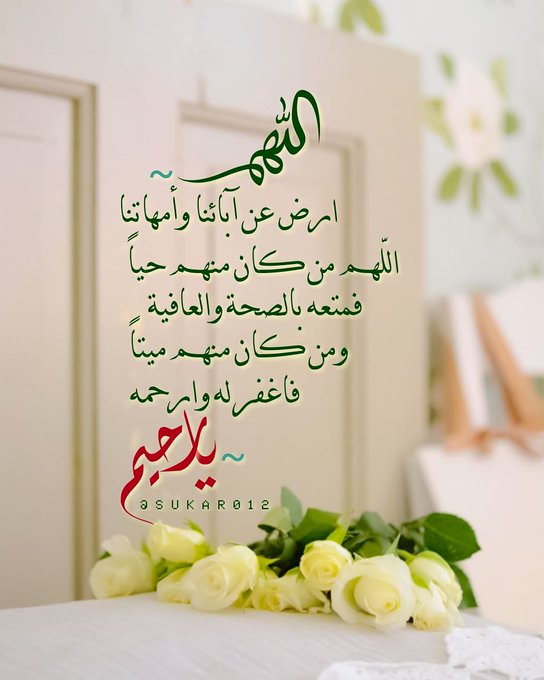 اللهم ~
ارض عن آبائنا وأمهاتنا
اللّهم من كان منهم حياً
فمتعه بالصحة والعافية
ومن كان منهم ميتاً
فاغفر له وارحمه
~ يارحيم
@SUKAR012